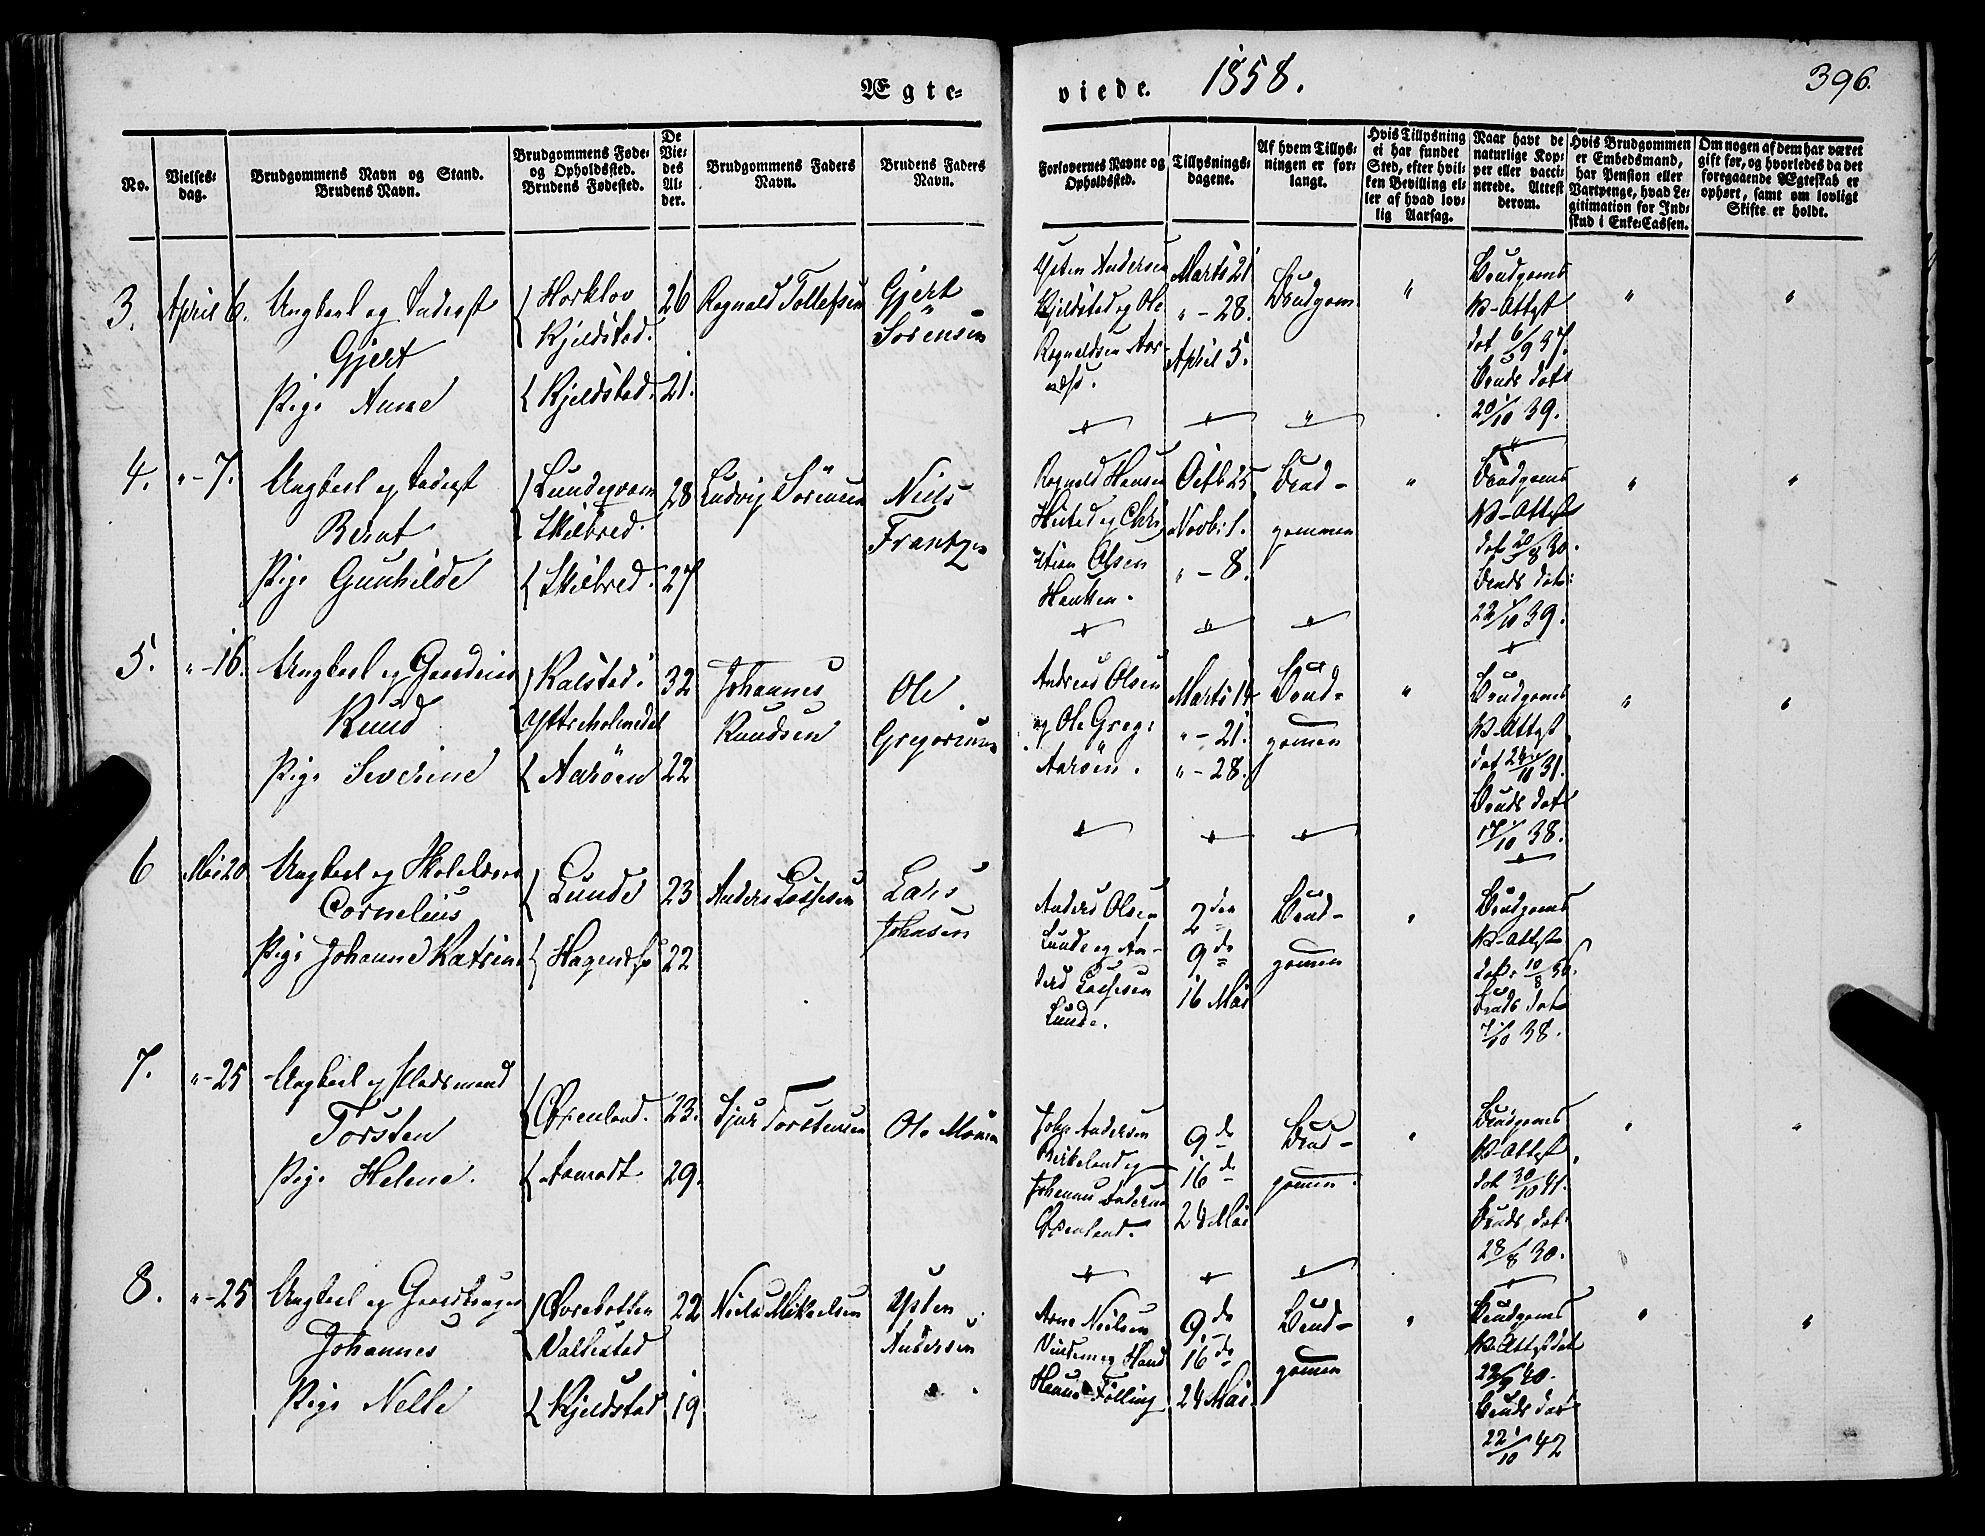 Ægte-
viede. 1858.
396.
No.
Vielses-
dag.
Brudgommens Navn og Stand.
Brudens Navn.
Brudgommens Føde-
og Opholdssted.
Brudens Fødested.
De
Vie-
des
Al-
der.
Brudgommens Faders
Navn.
Brudens Faders
Navn.
Forlovernes Navne og
Opholdssted.
Tillysnings-
dagene.
Af hvem Tillys-
ningen er for-
langt.
Hvis Tillysning
ei har fundet
Sted, efter hvil-
ken Bevilling el-
ler af hvad lov-
lig Aarsag.
Naar havt de
naturlige Kop-
per eller vacci-
nerede. Attest
derom.
Hvis Brudgommen
er Embedsmand,
har Pension eller
Vartpenge, hvad Le-
gitimation for Ind-
skud i Enke-Cassen.
Om nogen af dem har været
gift før, og hvorledes da det
foregaaende Ægteskab er
ophørt, samt om lovligt
Skifte er holdt.
3. April 6. Ungkarl og
Gjert
Pige Anne
Kjeldstad.
Kjeldstad.
26
21.
Rognald Tollefsen
Gjert
Sörensen
Ysten Andersen
Kjeldstad og Ole
Rognaldsen
Marts 21
" - 28.
April 5.
Brudgom
"
Brudgoms
V-Attest
dat 6/9 37.
Bruds dat
20/10 39.
"
"
4. " - 7. Ungkarl og
Bernt
Pige Gunhilde
Skilbred.
Skilbred.
28
27
Ludvig Sörensen
Niels
Frantzen
Rognald Hansen
og Chri
stian Olsen
Octb 25
Novb. 1.
" - 8.
Brud-
gommen
"
Brudgoms
V-Attest
dat 20/8 30.
Bruds dat:
22/10 39.
"
"
5. " - 16. Ungkarl og
Knud
Pige Severine
Kalstad.
Yttreholmedal
Aaröen
32
22
Johannes
Knudsen
Ole
Andreas Olsen
og Ole Greg:
Aaröen.
Marts 14
" - 21.
" - 28.
Brud-
gomen
"
Brudgoms
V-Attest
dat 31.
Bruds dat
17/10 38.
"
"
6 Mai 20 Ungkarl og
Cornelius
Pige Johanne Katrine
Lunde
23
22
Anders
Lars
Johnsen
Anders Olsen
Lunde og An-
ders
Lunde.
2den
9de
16 Mai
Brud-
gomen
"
Brudgoms
V-Attest
dat. 10/8 36.
Bruds dat
7/10 38.
7. " - 25 Ungkarl og Pladsmand
Torsten
Pige Helene.
23.
29.
Sjur Torstensen
Ole Monsen
Johs Andersen
Birkeland og
Johannes
9de
16de
24 Mai
Brud-
gomen.
"
Brudgoms
V-Attest.
dat 30/10 41.
Bruds dat.
28/8 30.
"
"
8. " - 25 Ungkarl og
Johannes
Pige Nelle
Vallestad
Kjeldstad
22
19
Niels Mikkelsen
Ysten
Andersen
Arne Nielsen
Hans
Fölling
9de
16de
24 Mai.
Brud-
gomen
"
Brudgoms
V-Attest dat
22/9 40.
Bruds dat
22/10 42
"
"